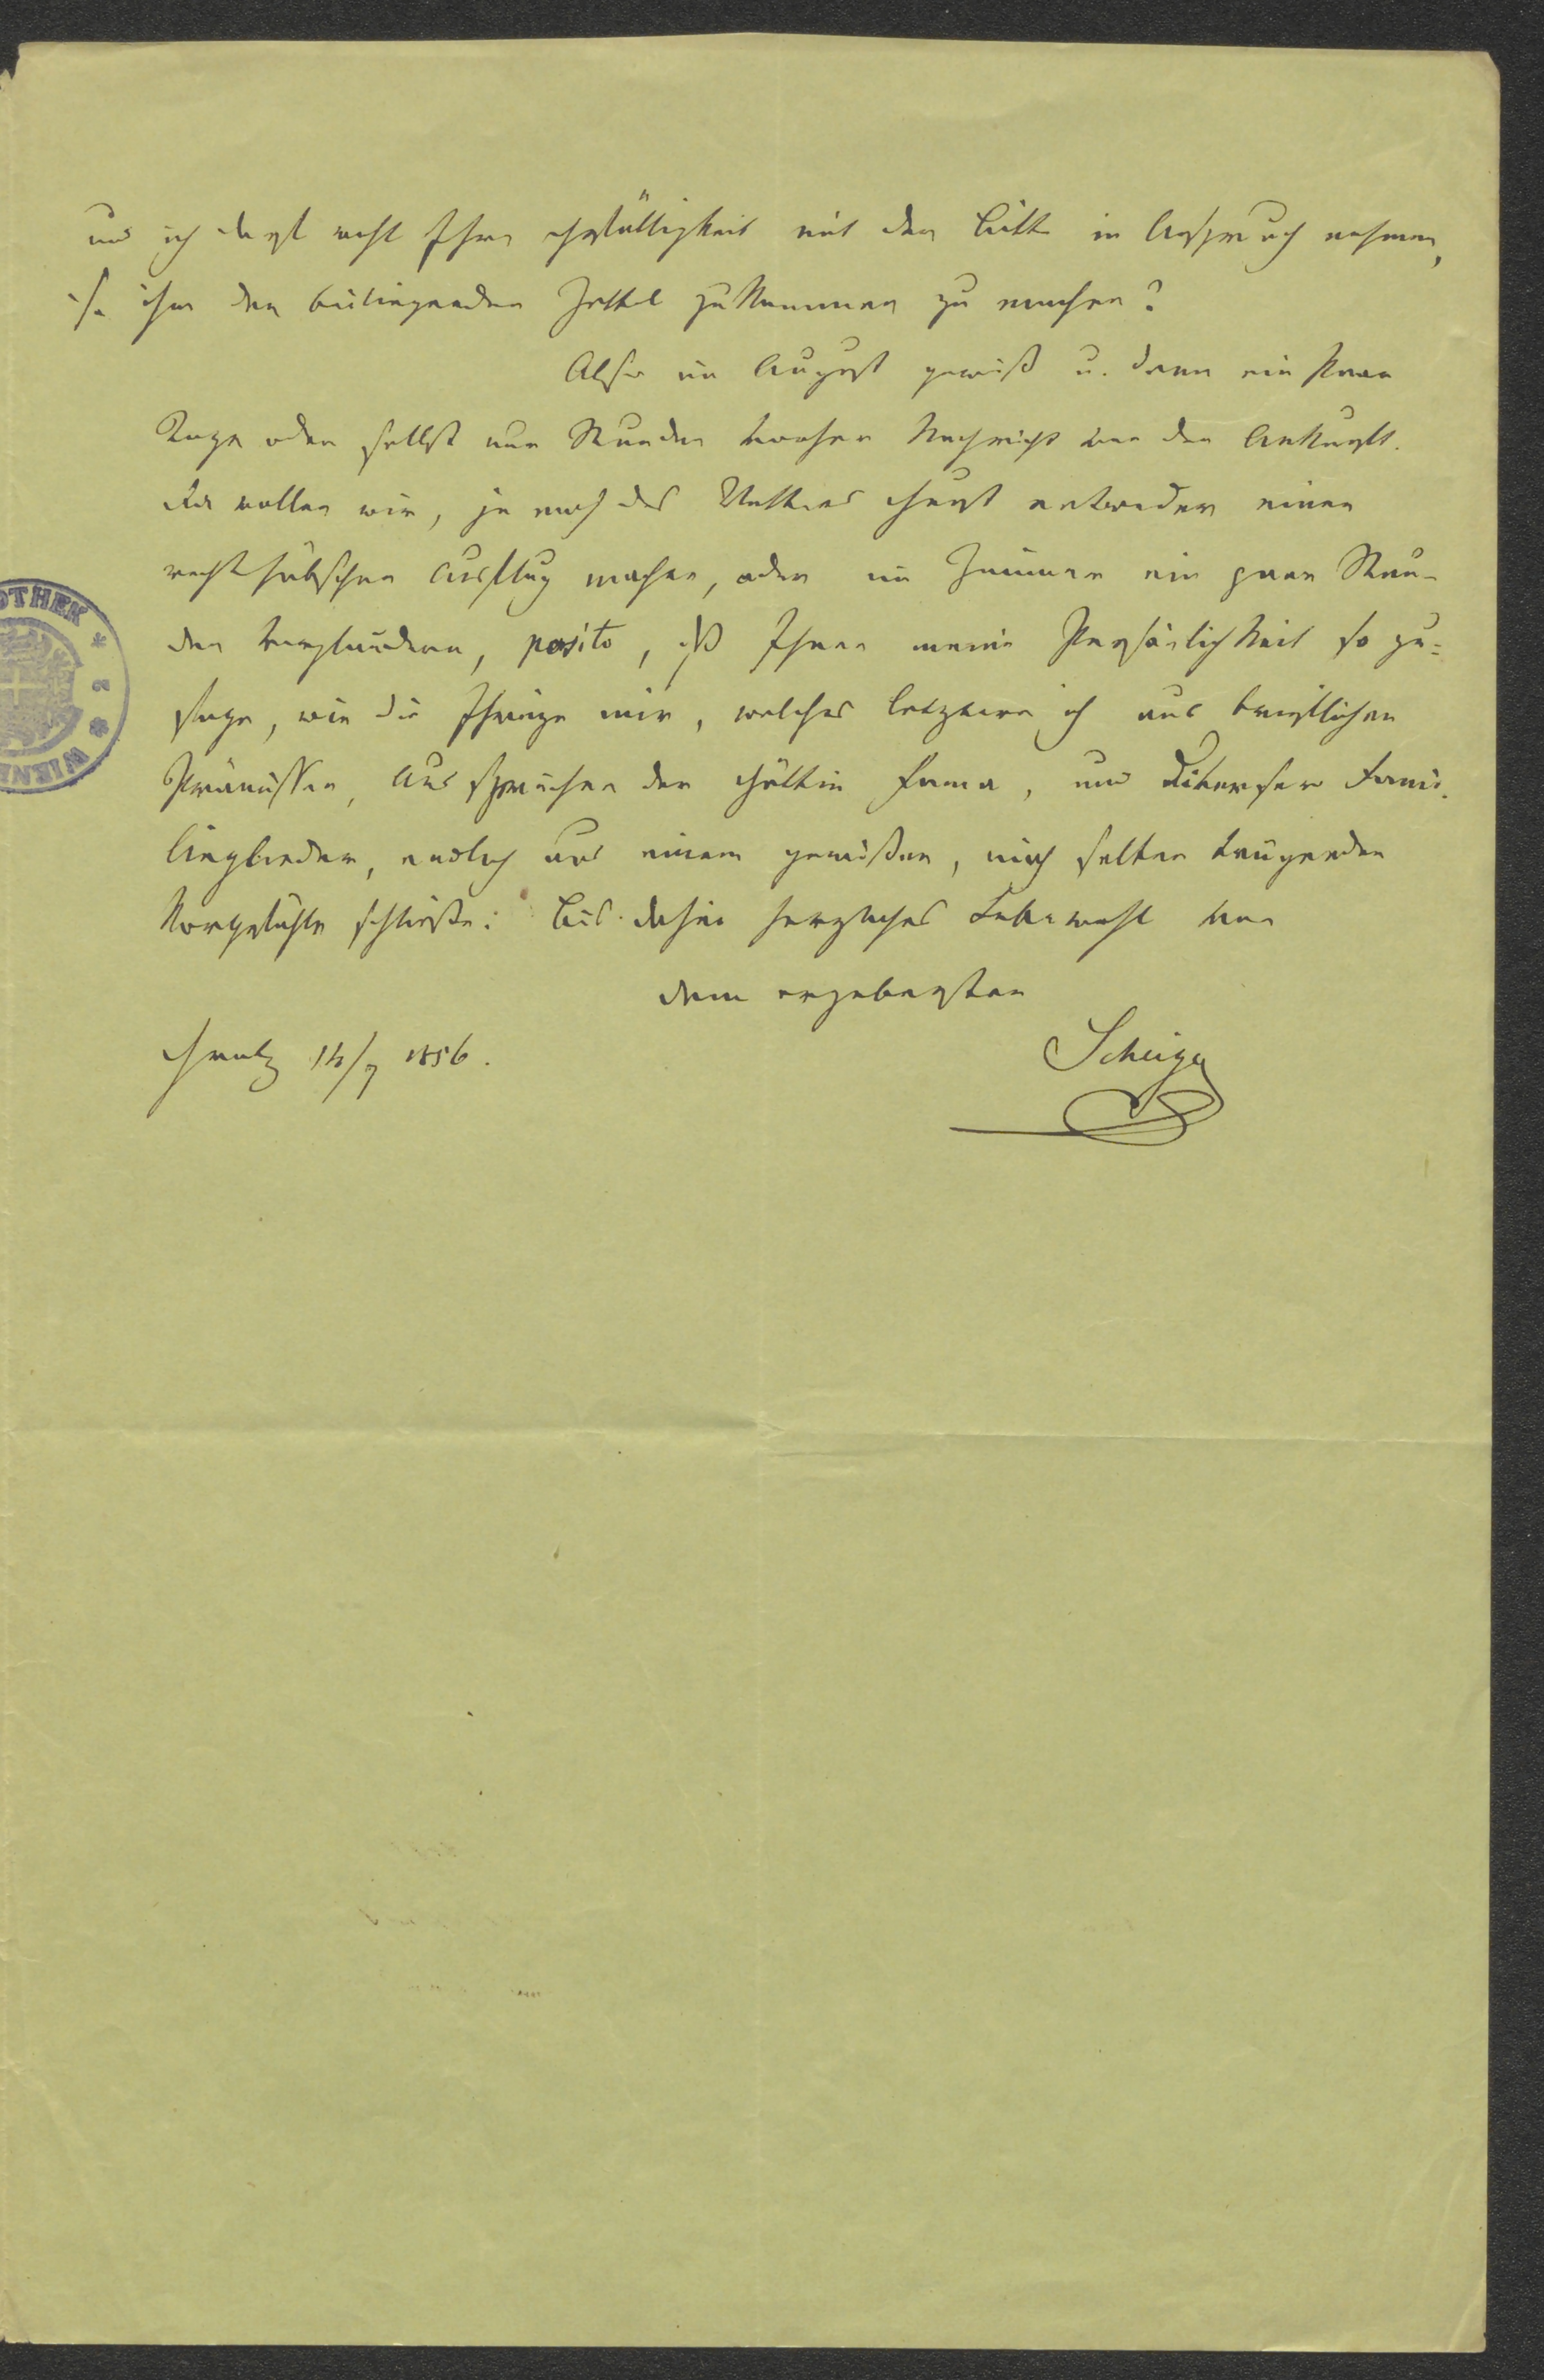 und ich darf wohl Ihre Gefälligkeit mit der Bitte in Anspruch nehmen,
ihm den beiliegenden Zettel zukommen zu machen?
Also im August gewiß u. dann ein Paar
Tage oder selbst nur Stunden vorher Nachricht von der Ankunft.
da wollen wir, je nach des Wetters Gunst entweder einen
recht hübschen Ausflug machen, oder im Zimmer ein paar Stun-
den verplaudern, posito, daß Ihnen meine Persönlichkeit so zu=
sage, wie die Ihrige mir, welches letztere ich aus brieflichen
Prämissen, Aussprüchen der Göttin Fama, und diverser Fami-
lienglieder, endlich aus einem gewißen, mich selten trügenden
Vorgefühle schließe: Bis dahin herzliches Lebewohl von
dem ergebensten
Gratz 14/7 1856. Scheiger
OTHEK * WIENE